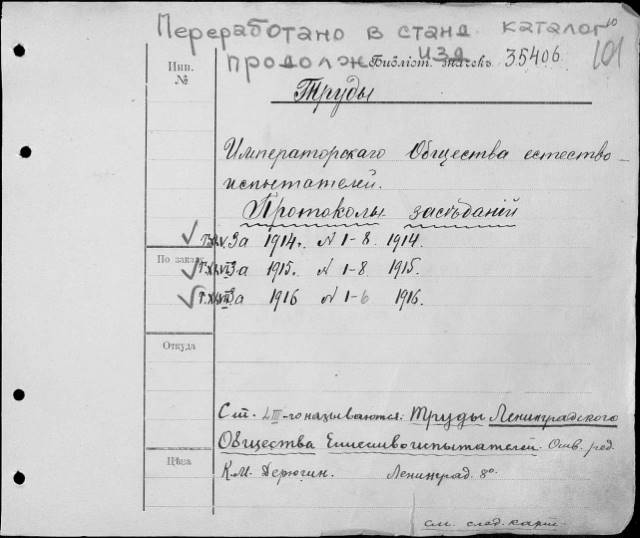 Переработано в станд. каталог 10
продолж. изд. 101
Инв.
№
Библіот. значекъ 35406
Труды
Императорскаго Общества естество-
испытателей.
Протоколы засѣданій
За 1914г. № 1-8. 1914.
За 1915. № 1-8 1915.
За 1916 № 1-6 1916.
По заказу
Откуда
Цѣна
С т. LIII-го называются: Труды Ленинградского
Общества Естествоиспытателей. Отв. ред.
К.М. Дерюгин. Ленинград. 8°.
см. след. карт.